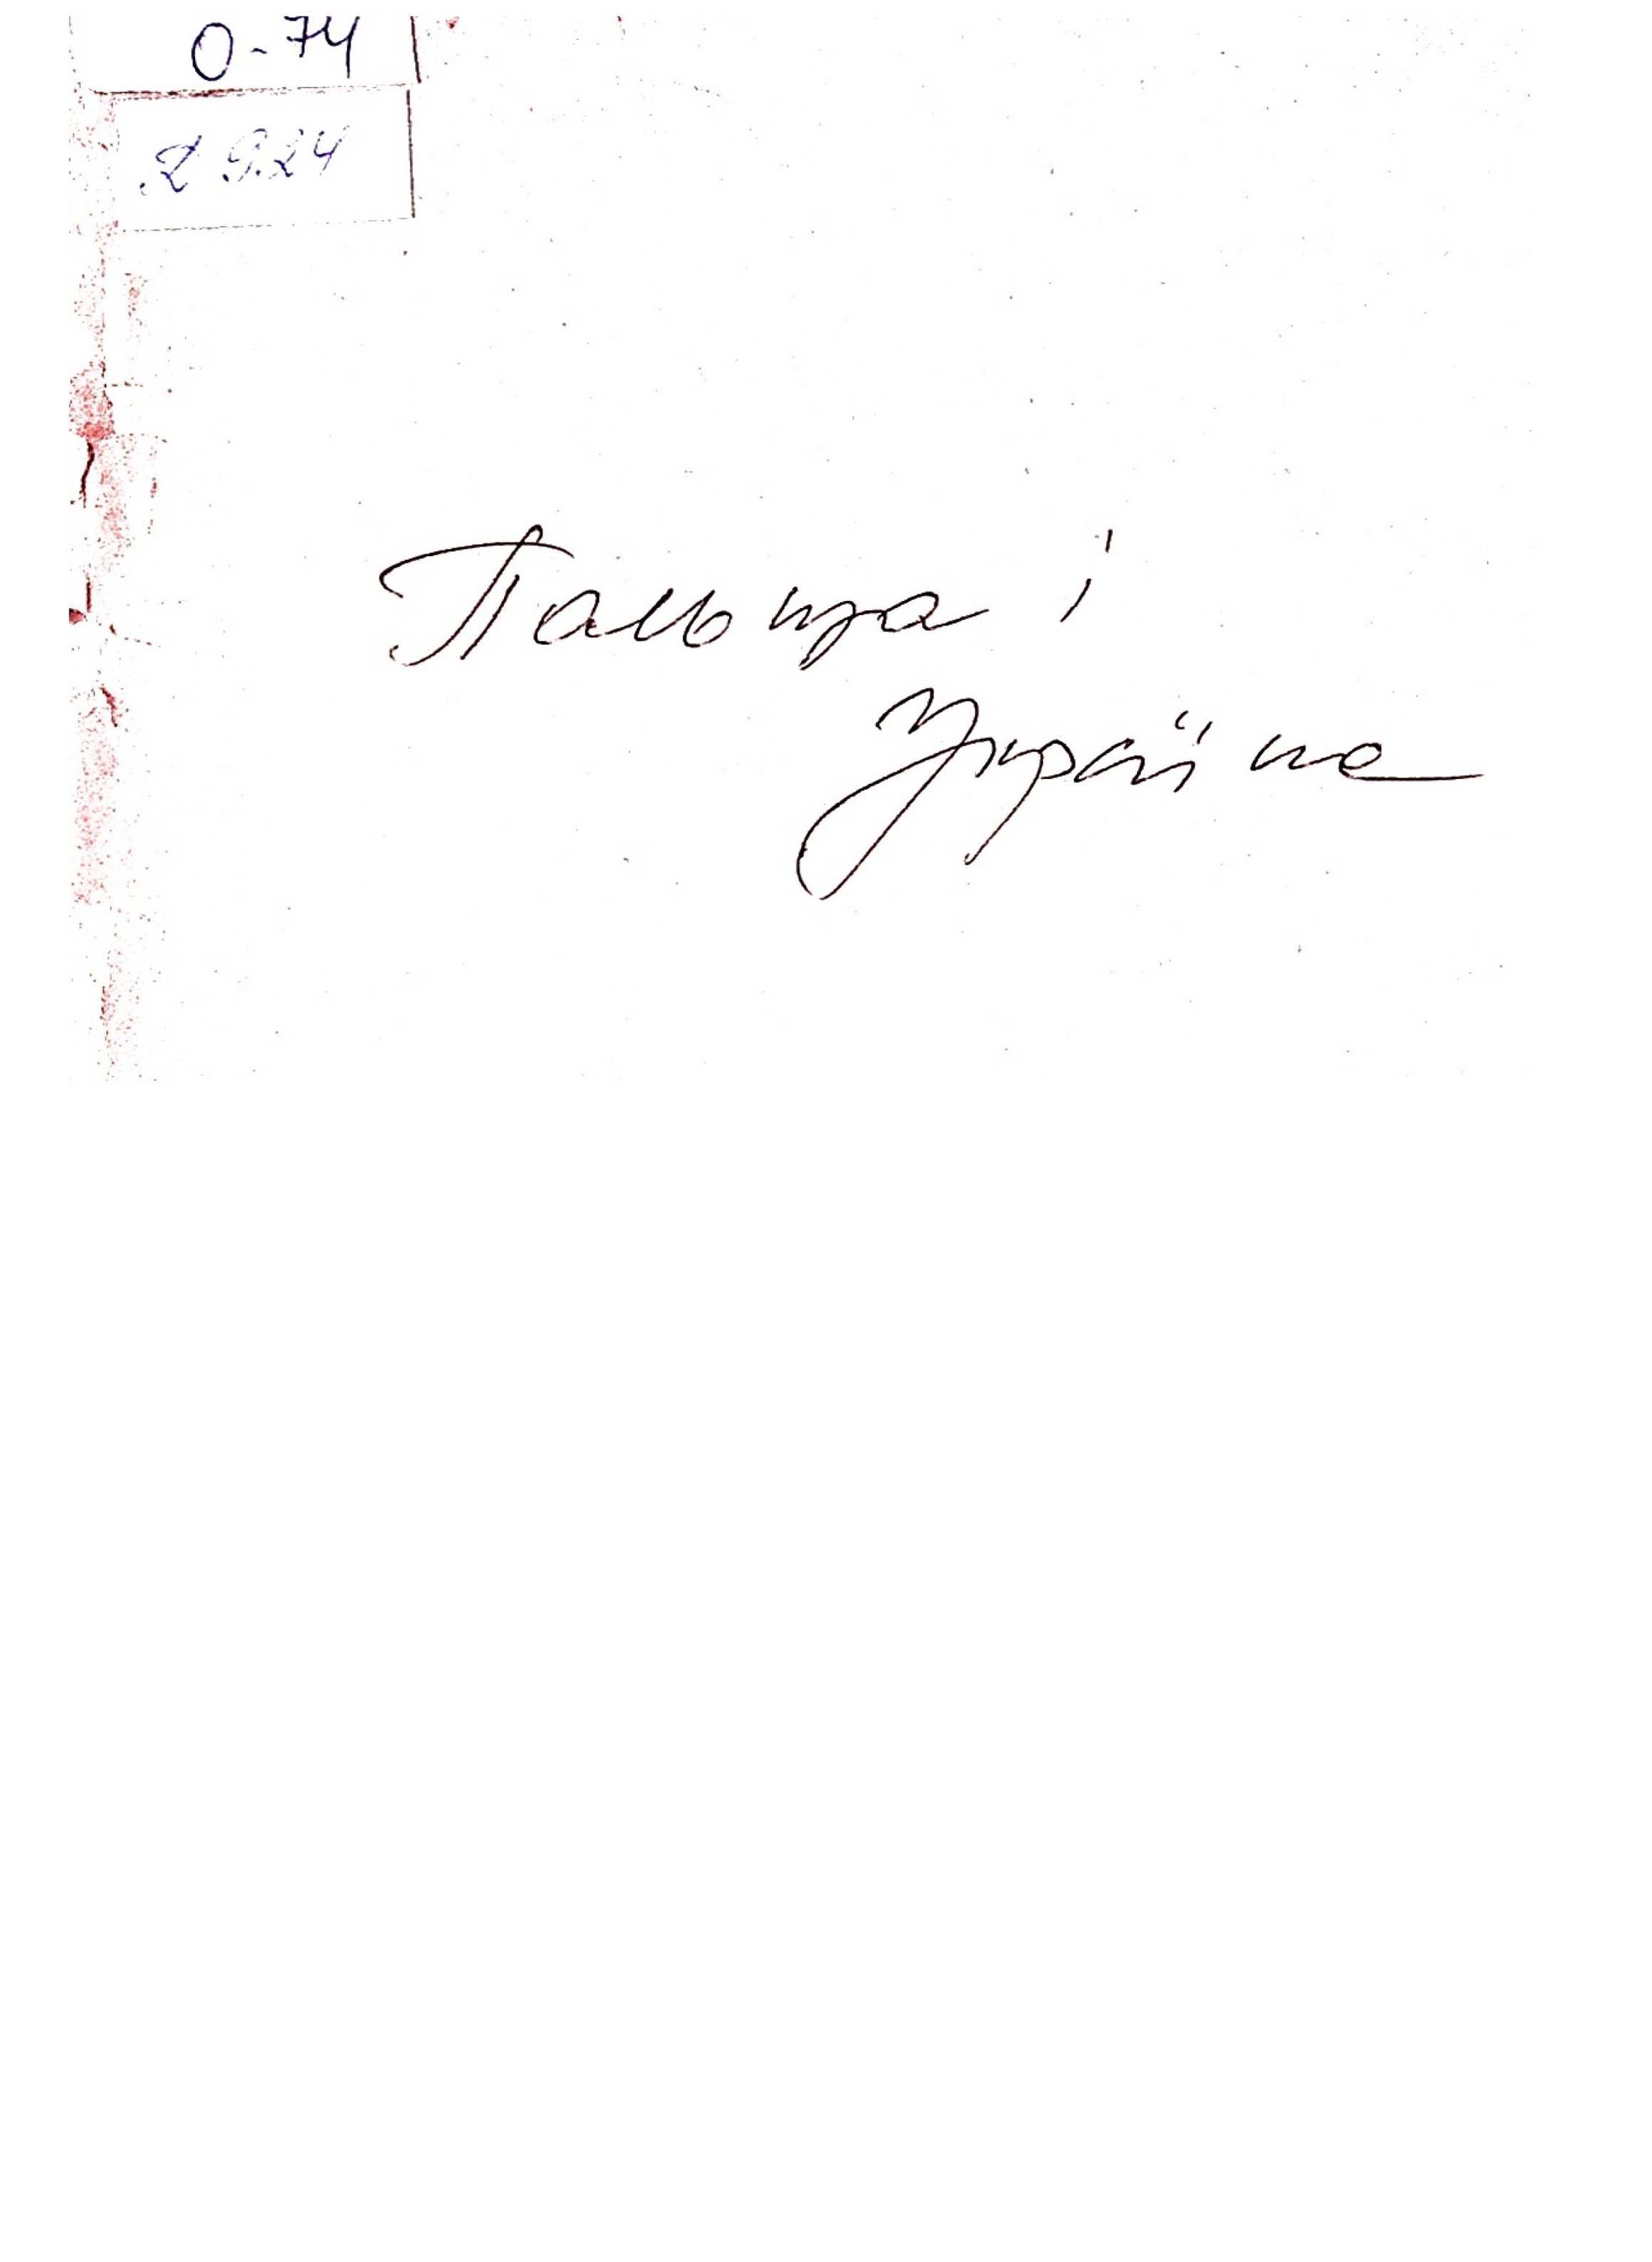 О-74
29.24
Польща і
Україна